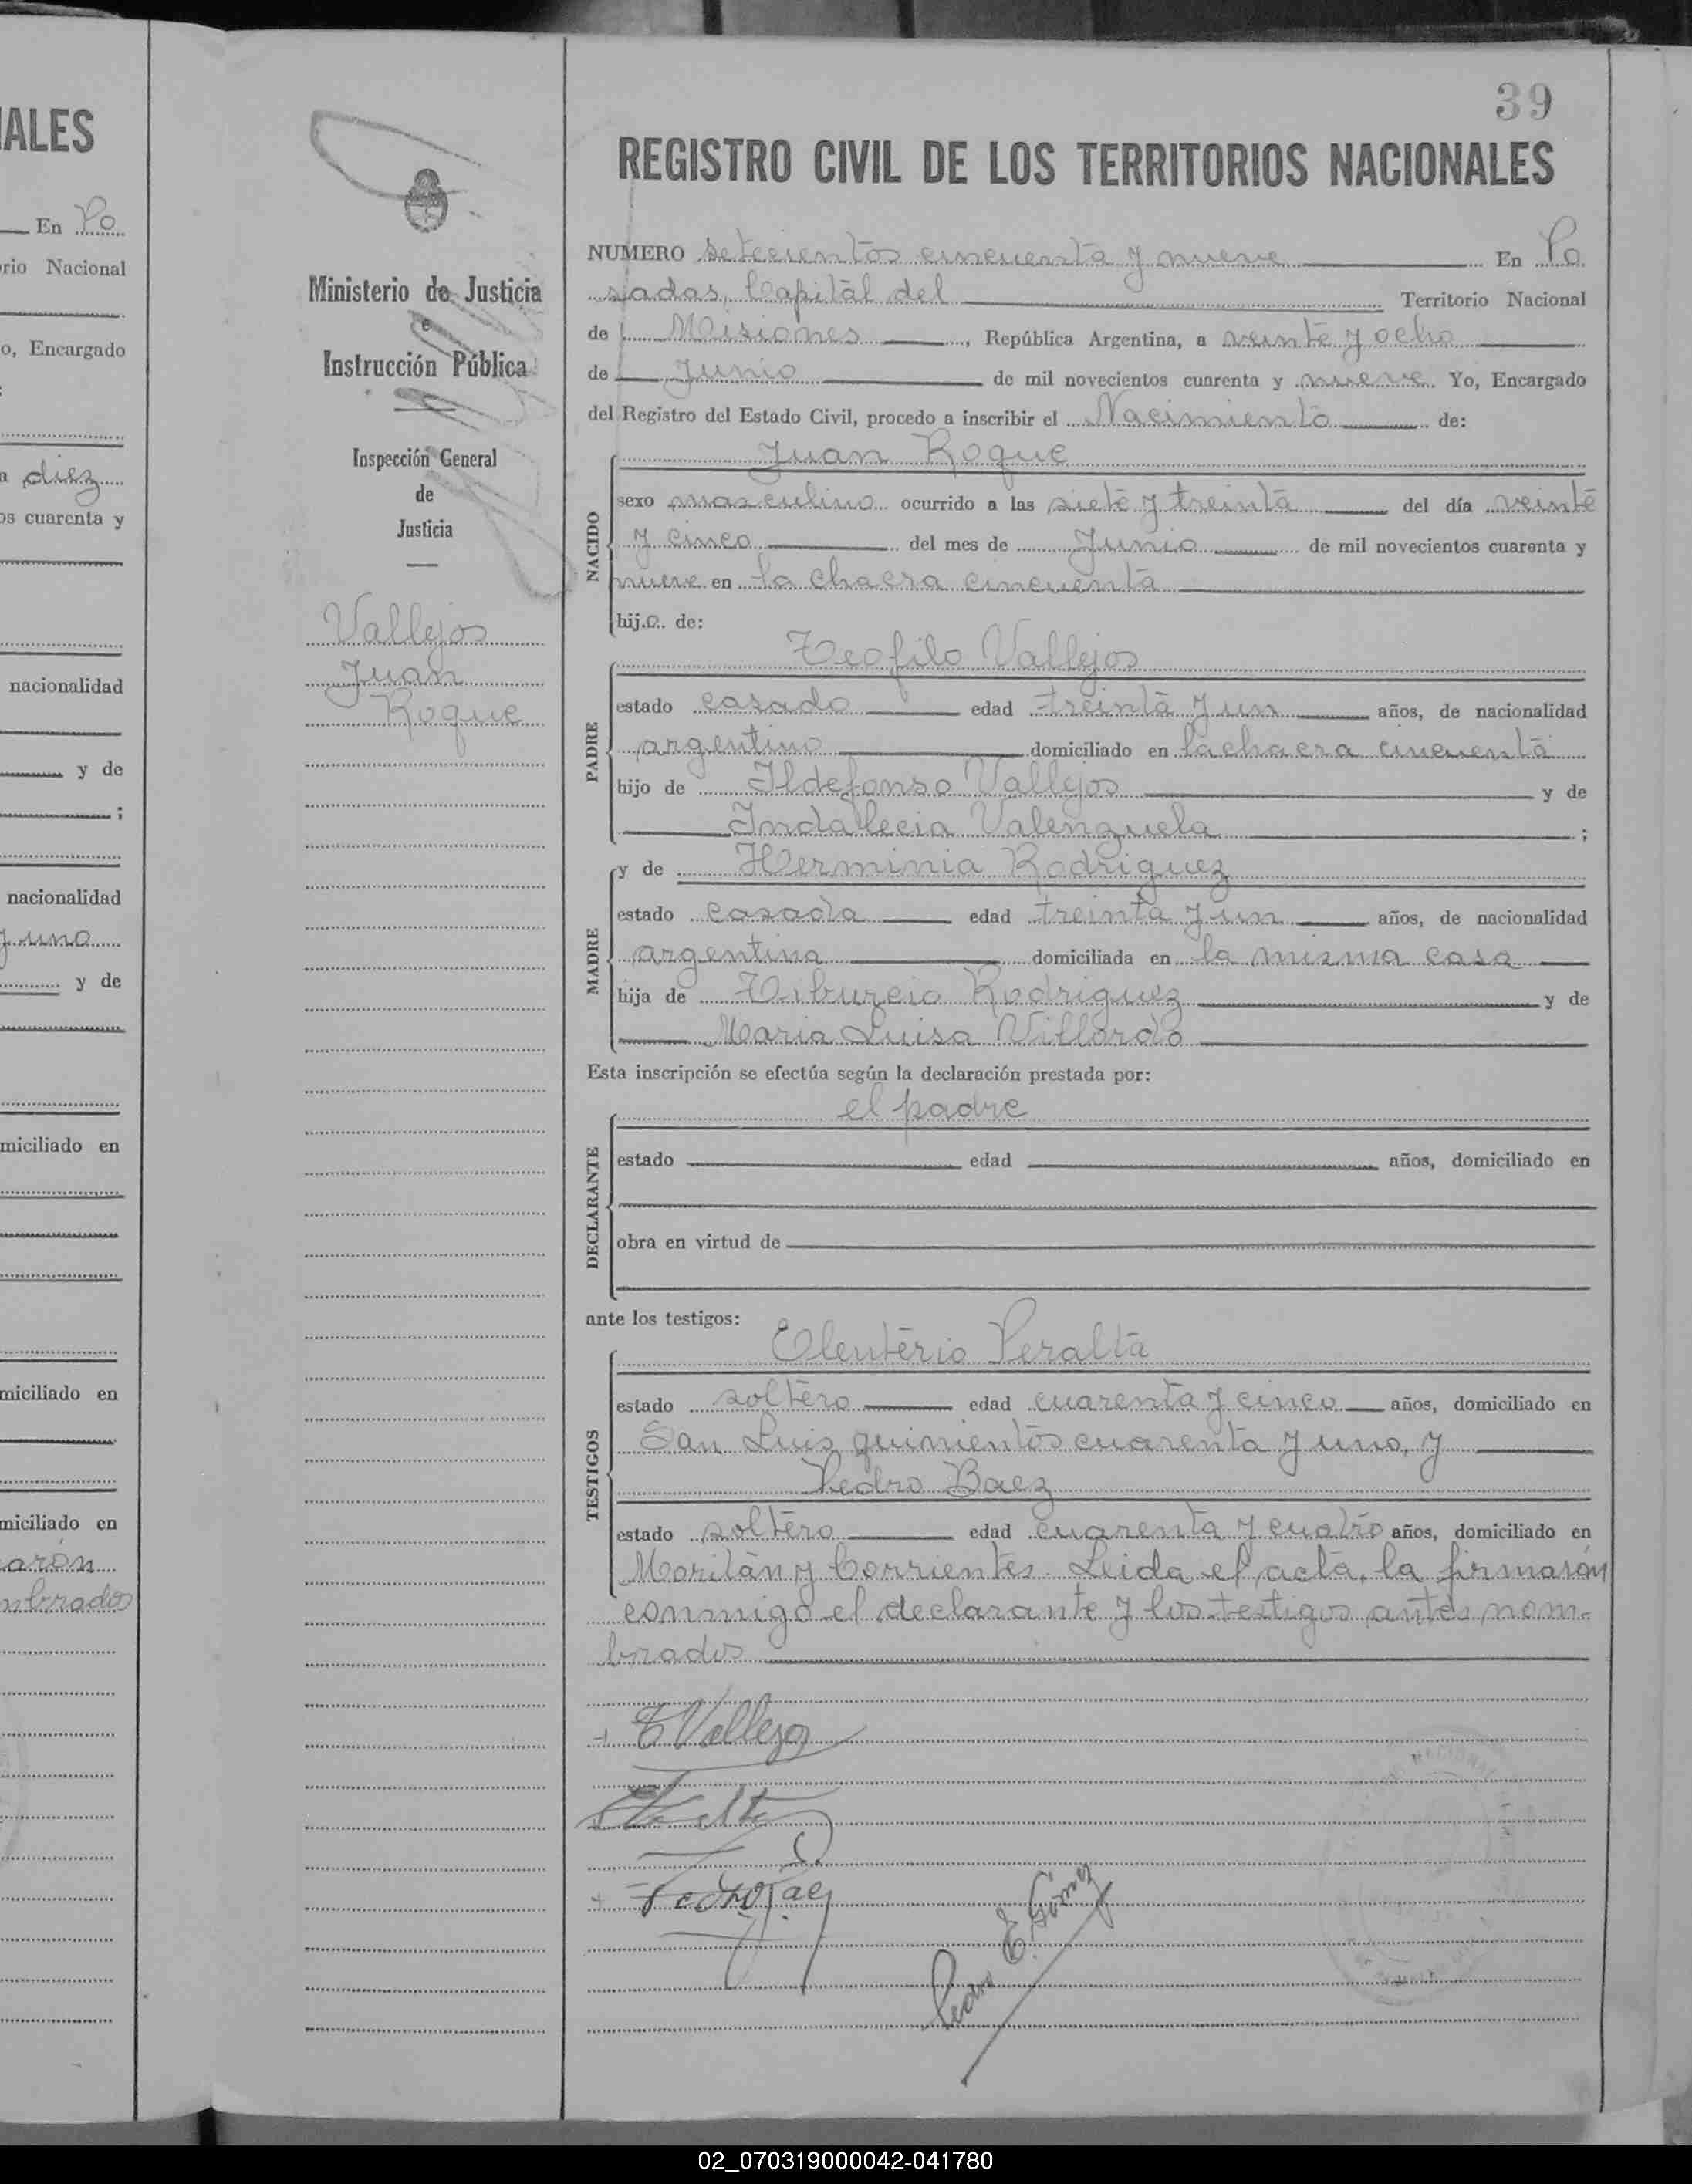 ALES
En Po
rio Nacional
o, Encargado
a diez
os cuarenta y
nacionalidad
y de
;
nacionalidad
y uno
y de
miciliado en
miciliado en
miciliado en
aron
mbrados
Ministerio de Justicia
e
Instrucción Pública
Inspección General
de
Justicia
Vallejos
Juan
Roque
39
REGISTRO CIVIL DE LOS TERRITORIOS NACIONALES
NUMERO setecientos cincuenta y nueve En Po
sadas, Capital del Territorio Nacional
de Misiones, República Argentina, a veinte y ocho
de Junio de mil novecientos cuarenta y nueve. Yo, Encargado
del Registro del Estado Civil, procedo a inscribir el Nacimiento de:
NACIDO
Juan Roque
sexo masculino ocurrido a las siete y treinta del día veinte
y cinco del mes de Junio de mil novecientos cuarenta y
nueve en la chacra cincuenta
hijo de:
PADRE
Teofilo Vallejos
estado casado edad treinta y un años, de nacionalidad
argentino domiciliado en la chacra cincuenta
hijo de Ildefonso Vallejos y de
Indallecia Valenzuela ;
MADRE
y de Herminia Rodriguez
estado casada edad treinta y un años, de nacionalidad
argentina domiciliada en la misma casa
hija de Tiburcio Rodriguez y de
Maria Luisa Villordo
Esta inscripción se efectúa según la declaración prestada por:
DECLARANTE
el padre
estado edad años, domiciliado en
obra en virtud de
ante los testigos:
TESTIGOS
Eleuterio Peralta
estado soltero edad cuarenta y cinco años, domiciliado en
San Luis quinientos cuarenta y uno, y
Pedro Baez
estado soltero edad cuarenta y cuatro años, domiciliado en
Moritán y Corrientes. Leida el acta, la firmarón
conmigo el declarante y los testigos antes nom-
brados
T Vallejos
Pedro Baez
Pedro E. Gómez
02_070319000042-041780